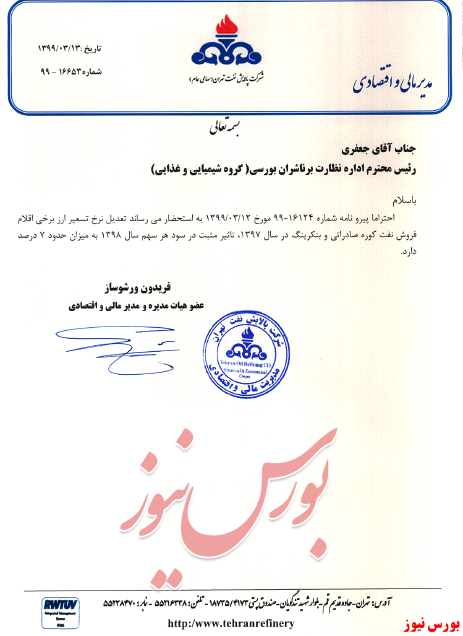 تاریخ: ۱۳۹۹/۰۳/۱۳
شماره ۱۶۶۵۳ - ۹۹
شرکت پالایش نفت تهران (سهامی عام)
مدیر مالی و اقتصادی
بسمه تعالی
جناب آقای جعفری
رئیس محترم اداره نظارت برناشران بورسی( گروه شیمیایی و غذایی)
باسلام
احتراما پیرو نامه شماره ۱۶۱۲۴-۹۹ مورخ ۱۳۹۹/۰۳/۱۲ به استحضار می رساند تعدیل نرخ تسعیر ارز برخی اقلام
فروش نفت کوره صادراتی و بنکرینگ در سال ۱۳۹۷، تاثیر مثبت در سود هر سهم سال ۱۳۹۸ به میزان حدود ۷ درصد
دارد.
فریدون ورشوساز
عضو هیات مدیره و مدیر مالی و اقتصادی
شرکت پالایش نفت تهران
Tehran Oil Refining CO
Financial & Economical
Dept
مدیریت مالی و اقتصادی
بورس نیوز
RWTUV
آدرس: تهران - جاده قدیم قم - بلوار شهید تندگویان - صندوق پستی ۱۸۷۳۵/۴۱۷۳ - تلفن: ۵۵۲۱۶۳۳۸ - نمابر: ۵۵۲۳۸۴۷۰
http://www.tehranrefinery
بورس نیوز